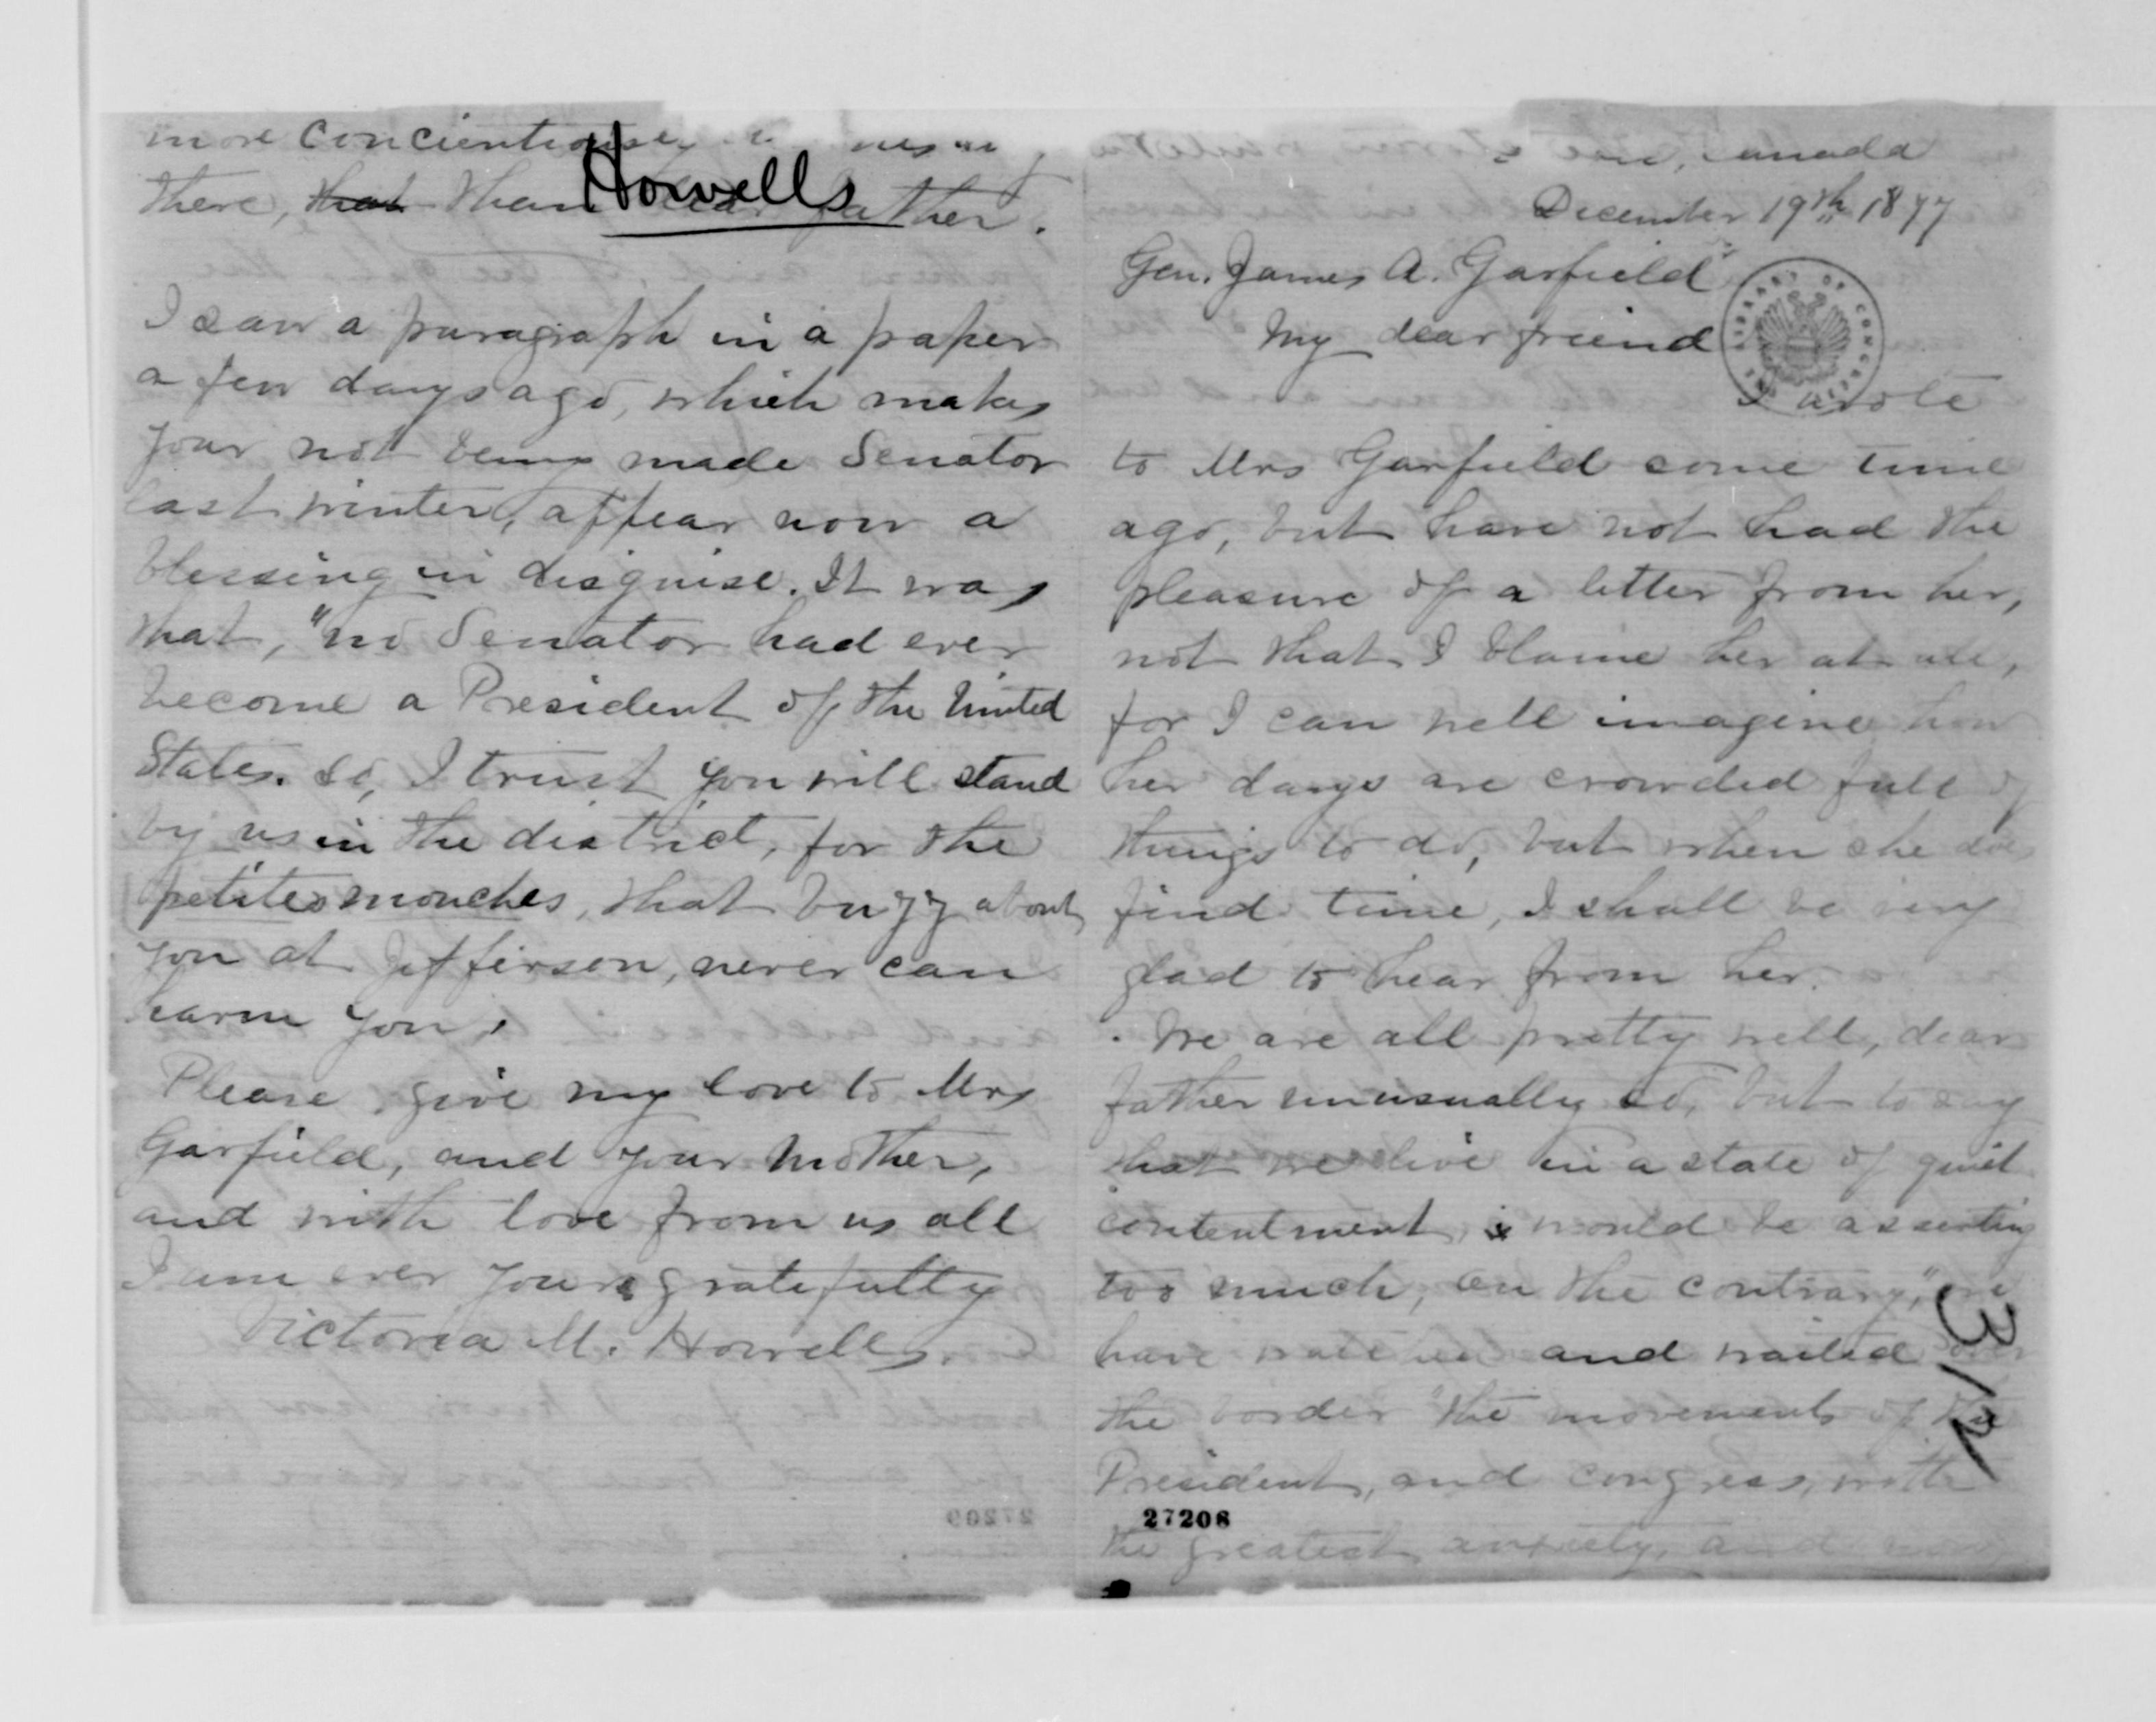 Canada
December 19th 1877
Gen. James A. Garfield
My dear friend
I wrote
to Mrs Garfield some time
ago, but have not had the
pleasure of a letter from her,
not that I blame her at all,
for I can well imagine how
her days are crowded full of
things to do, but when she does
find time, I shall be very
glad to hear from her.
We are all pretty well, dear
father unusually so, but to say
that we live in a state of quiet
contentment, would be asserting
too much, on the contrary, we
have watched and waited over
the border the movements of the
President, and congress, with
the greatest anxiety, and now
27208
312
THE LIBRARY OF CONGRESS
more concientiously
there, that than dear father.
Howells
I saw a paragraph in a paper
a few days ago, which makes
your not being made Senator
last winter, appear now a
blessing in disguise. It was
that, "no Senator had ever
become a President of the United
States. So, I trust you will stand
by us in the district, for the
petites mouches, that buzz about
you at Jefferson, never can
harm you.
Please give my love to Mrs
Garfield, and your Mother,
and with love from us all
I am ever yours gratefully
Victoria M. Howells.
27209